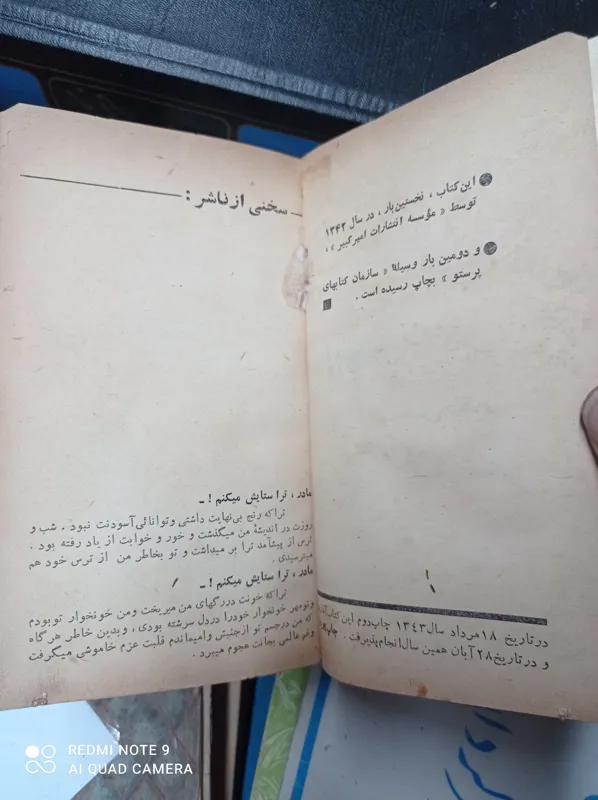 این کتاب ، نخستین بار ، در سال ۱۳۴۲
توسط « مؤسسه انتشارات امیر کبیر » ،
و دومین بار وسیلهٔ « سازمان کتابهای
پرستو » بچاپ رسیده است .
در تاریخ ۱۸ مرداد سال ۱۳۴۳ چاپ دوم این کتاب
و در تاریخ ۲۸ آبان همین سال انجام پذیرفت .
سخنی از ناشر :
مادر ، ترا ستایش میکنم ! ـ
تراکه رنج بی‌نهایت داشتی و توانائی‌آسودنت نبود . شب و
روزت در اندیشهٔ من میگذشت و خور و خوابت از یاد رفته بود .
ترس از پیشآمد ترا بر میداشت و تو بخاطر من از ترس خود هم
میترسیدی .
مادر ، ترا ستایش میکنم ! ـ
تراکه خونت در رگهای من میریخت ومن خونخوار تو بودم
وتومهر خونخوار خودرا دردل سرشته بودی ، وبدین خاطر هرگاه
که من درجسم تو ازجنبش وامیماندم قلبت عزم خاموشی میگرفت
وغم عالمی بجانت هجوم میبرد .
REDMI NOTE 9
AI QUAD CAMERA